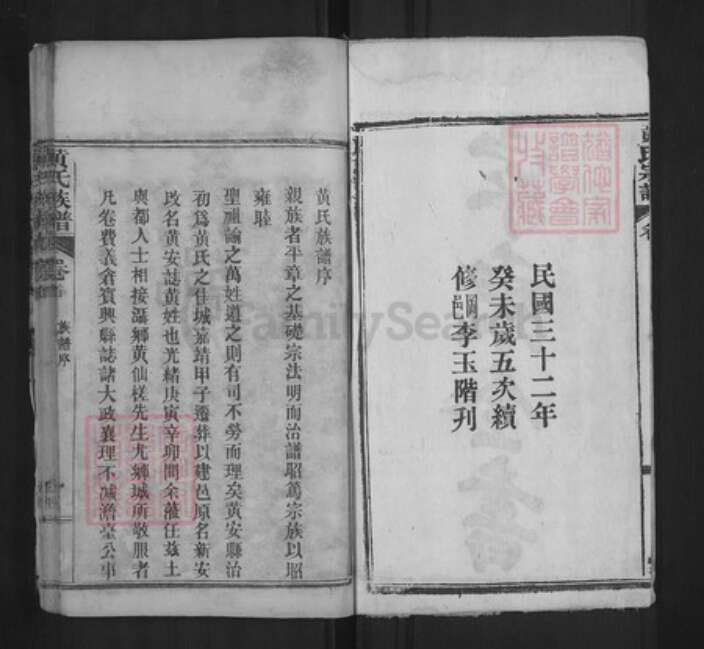 民國三十二年
癸未歲五次續
修 邑 李玉階刊
黃氏族譜序
親族者平章之基礎宗法明而治譜昭焉宗族以昭
雍睦
聖祖諭之萬姓遵之則有司不勞而理矣黃安縣治
初為黃氏之佳城嘉靖甲子遷葬以建邑原名新安
改名黃安誌黃姓也光緒庚寅辛卯間余蒞任茲土
與都人士相接灄鄉黃仙槎先生尤鄉城所敬服者
凡卷費義倉賓興縣誌諸大政襄理不減澹臺公事
黃氏族譜
卷首
族譜序
黃氏宗譜
卷
FamilySearch
收藏